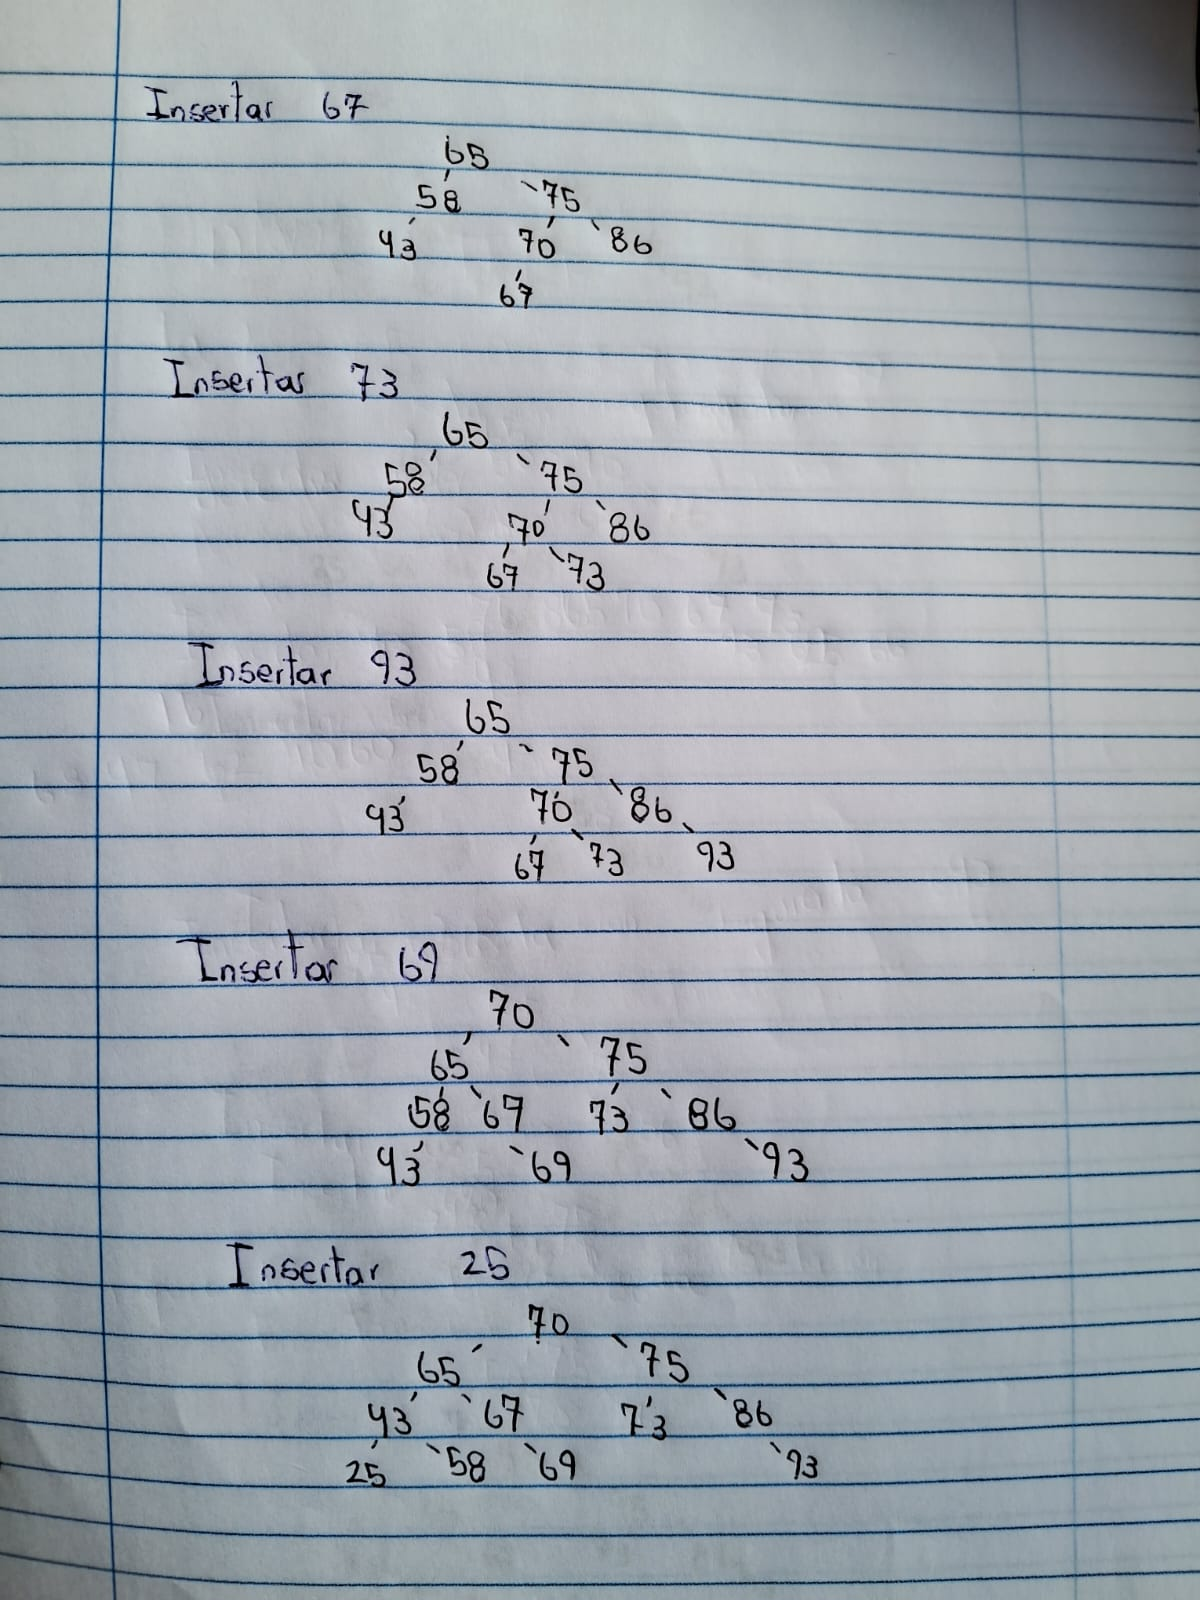 Insertar 67
65
58 75
43 70 86
67
Insertar 73
65
58 75
43 70 86
67 73
Insertar 93
65
58 75
43 70 86
67 73 93
Insertar 69
70
65 75
58 67 73 86
43 69 93
Insertar 25
70
65 75
43 67 73 86
25 58 69 93